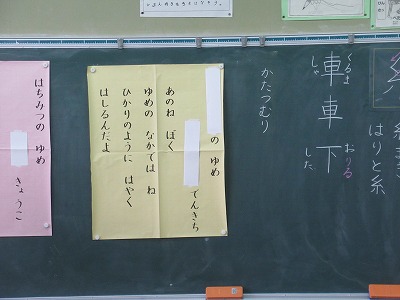 車 くるま しゃ
車
下 おりる した
はりと糸
かたつむり
の ゆめ
でんきち
あのね ぼく
ゆめの なかでは ね
ひかりのように はやく
はしるんだよ
はちみつの ゆめ
きょうこ